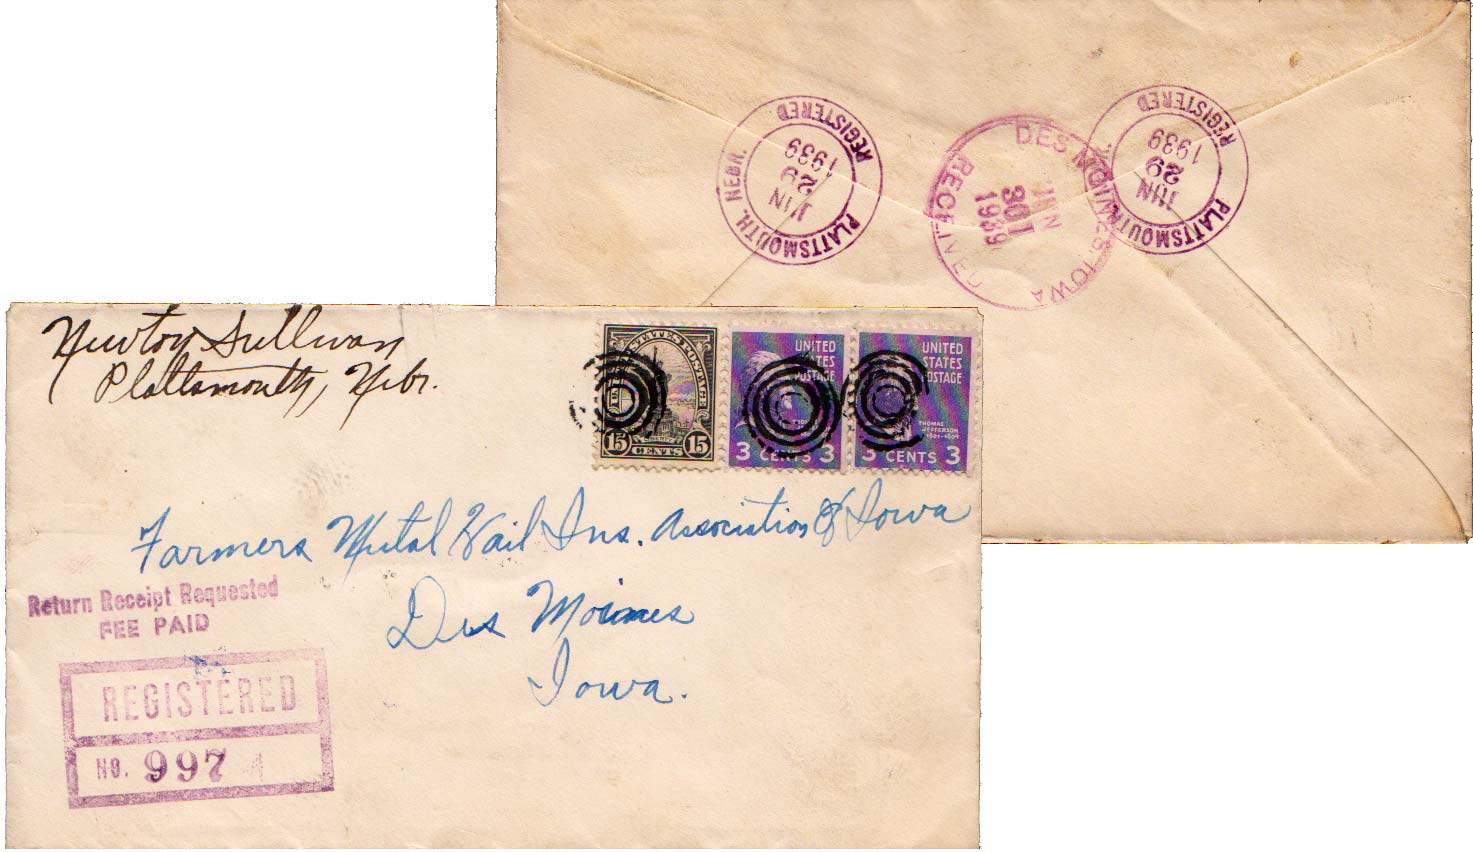 Newton Sullivan
Plattsmouth, Nebr.
STATES POSTAGE
15 15
CENTS
UNITED
STATES
POSTAGE
3 CENTS 3
UNITED
STATES
POSTAGE
THOMAS
JEFFERSON
1801-1809
3 CENTS 3
Farmers Mutal Hail Ins. Association of Iowa
Des Moines
Iowa.
Return Receipt Requested
FEE PAID
REGISTERED
NO. 997
PLATTSMOUTH, NEBR.
REGISTERED
JUN
29
1939
DES MOINES, IOWA
RECEIVED
JUN
30
1939
PLATTSMOUTH
REGISTERED
JUN
29
1939